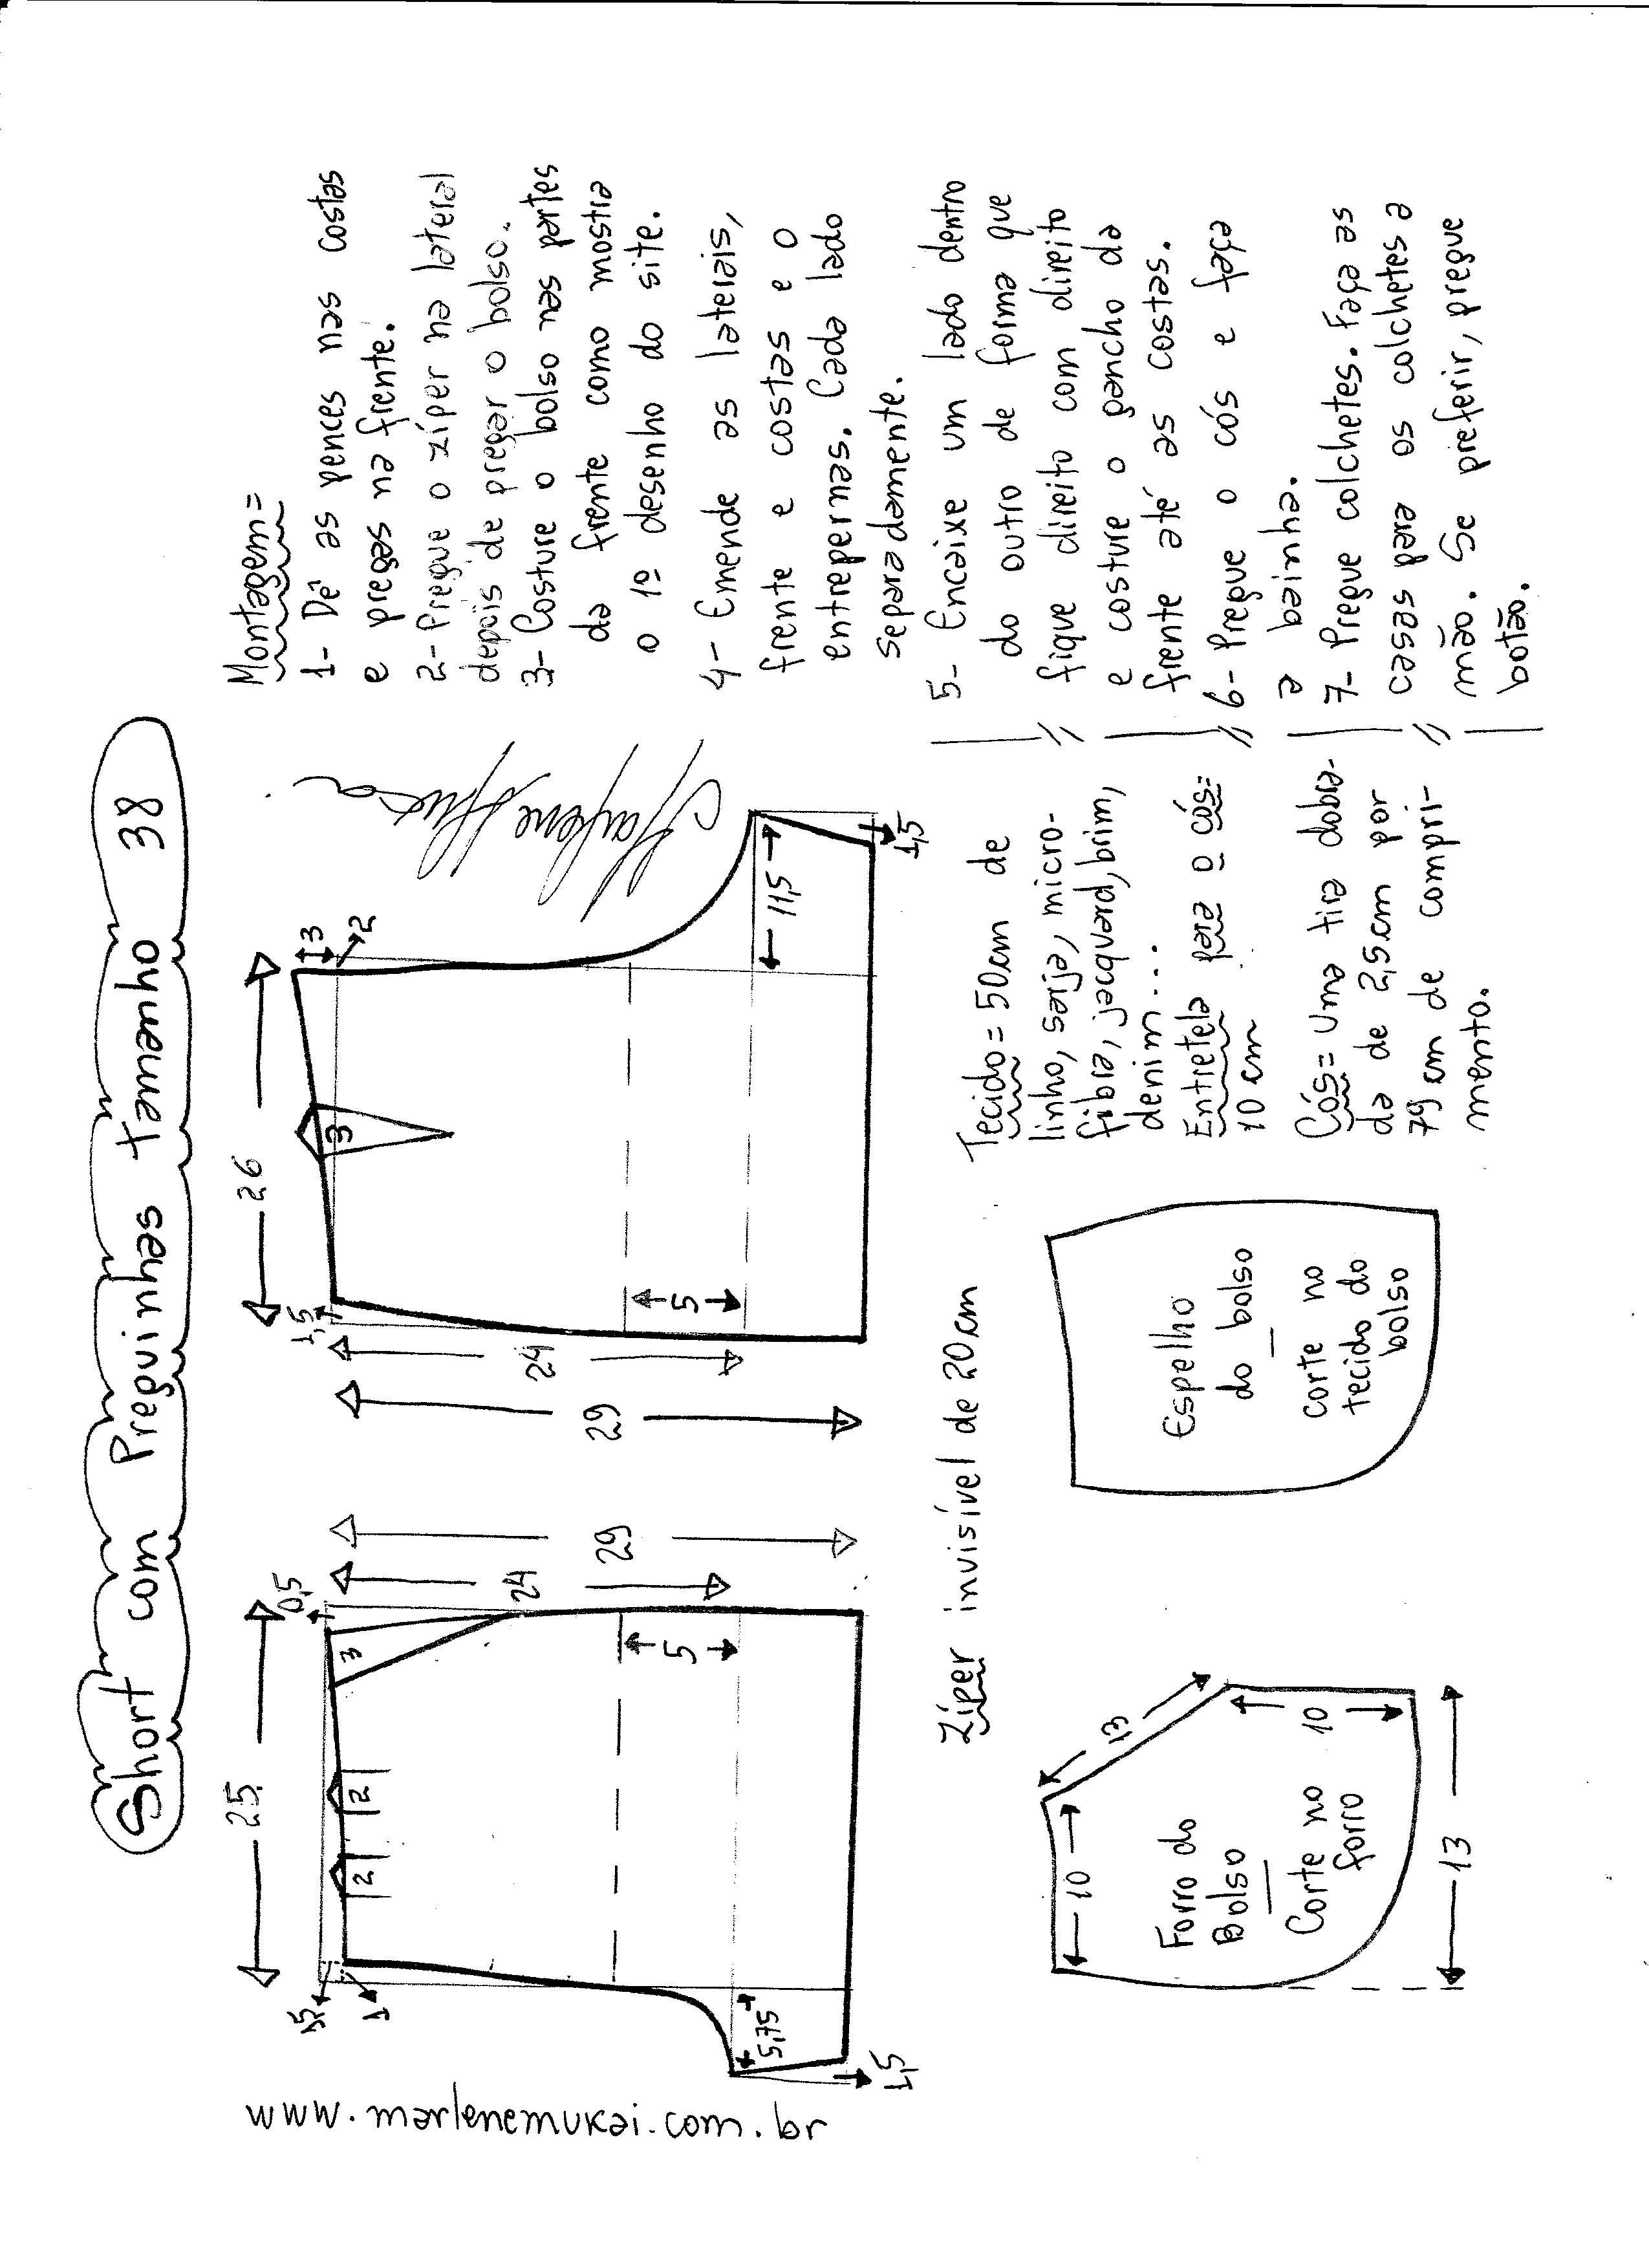 Short com Preguinhas tamanho 38
www.marlenemukai.com.br
25
0,5
3
2
2
1,5
1
24
29
5
5,75
1,5
26
3
2
1,5
3
24
29
5
11,5
1,5
Montagem=
1- Dê as pences nas costas
e pregas na frente.
2- Pregue o zíper na lateral
depois de pregar o bolso.
3- Costure o bolso nas partes
da frente como mostra
o 1º desenho do site.
4- Emende as laterais,
frente e costas e o
entrepernas. Cada lado
separadamente.
5- Encaixe um lado dentro
do outro de forma que
fique direito com direito
e costure o gancho da
frente até as costas.
6- Pregue o cós e faça
a bainha.
7- Pregue colchetes. Faça as
casas para os colchetes a
mão. Se preferir, pregue
botão.
Zíper invisível de 20cm
Tecido= 50cm de
linho, sarja, micro-
fibra, jacquard, brim,
denim...
Entretela para o cós=
10 cm
Cós= uma tira dobra-
da de 2,5cm por
79 cm de compri-
mento.
10
13
10
13
Forro do
Bolso
Corte no
forro
Espelho
do bolso
corte no
tecido do
bolso